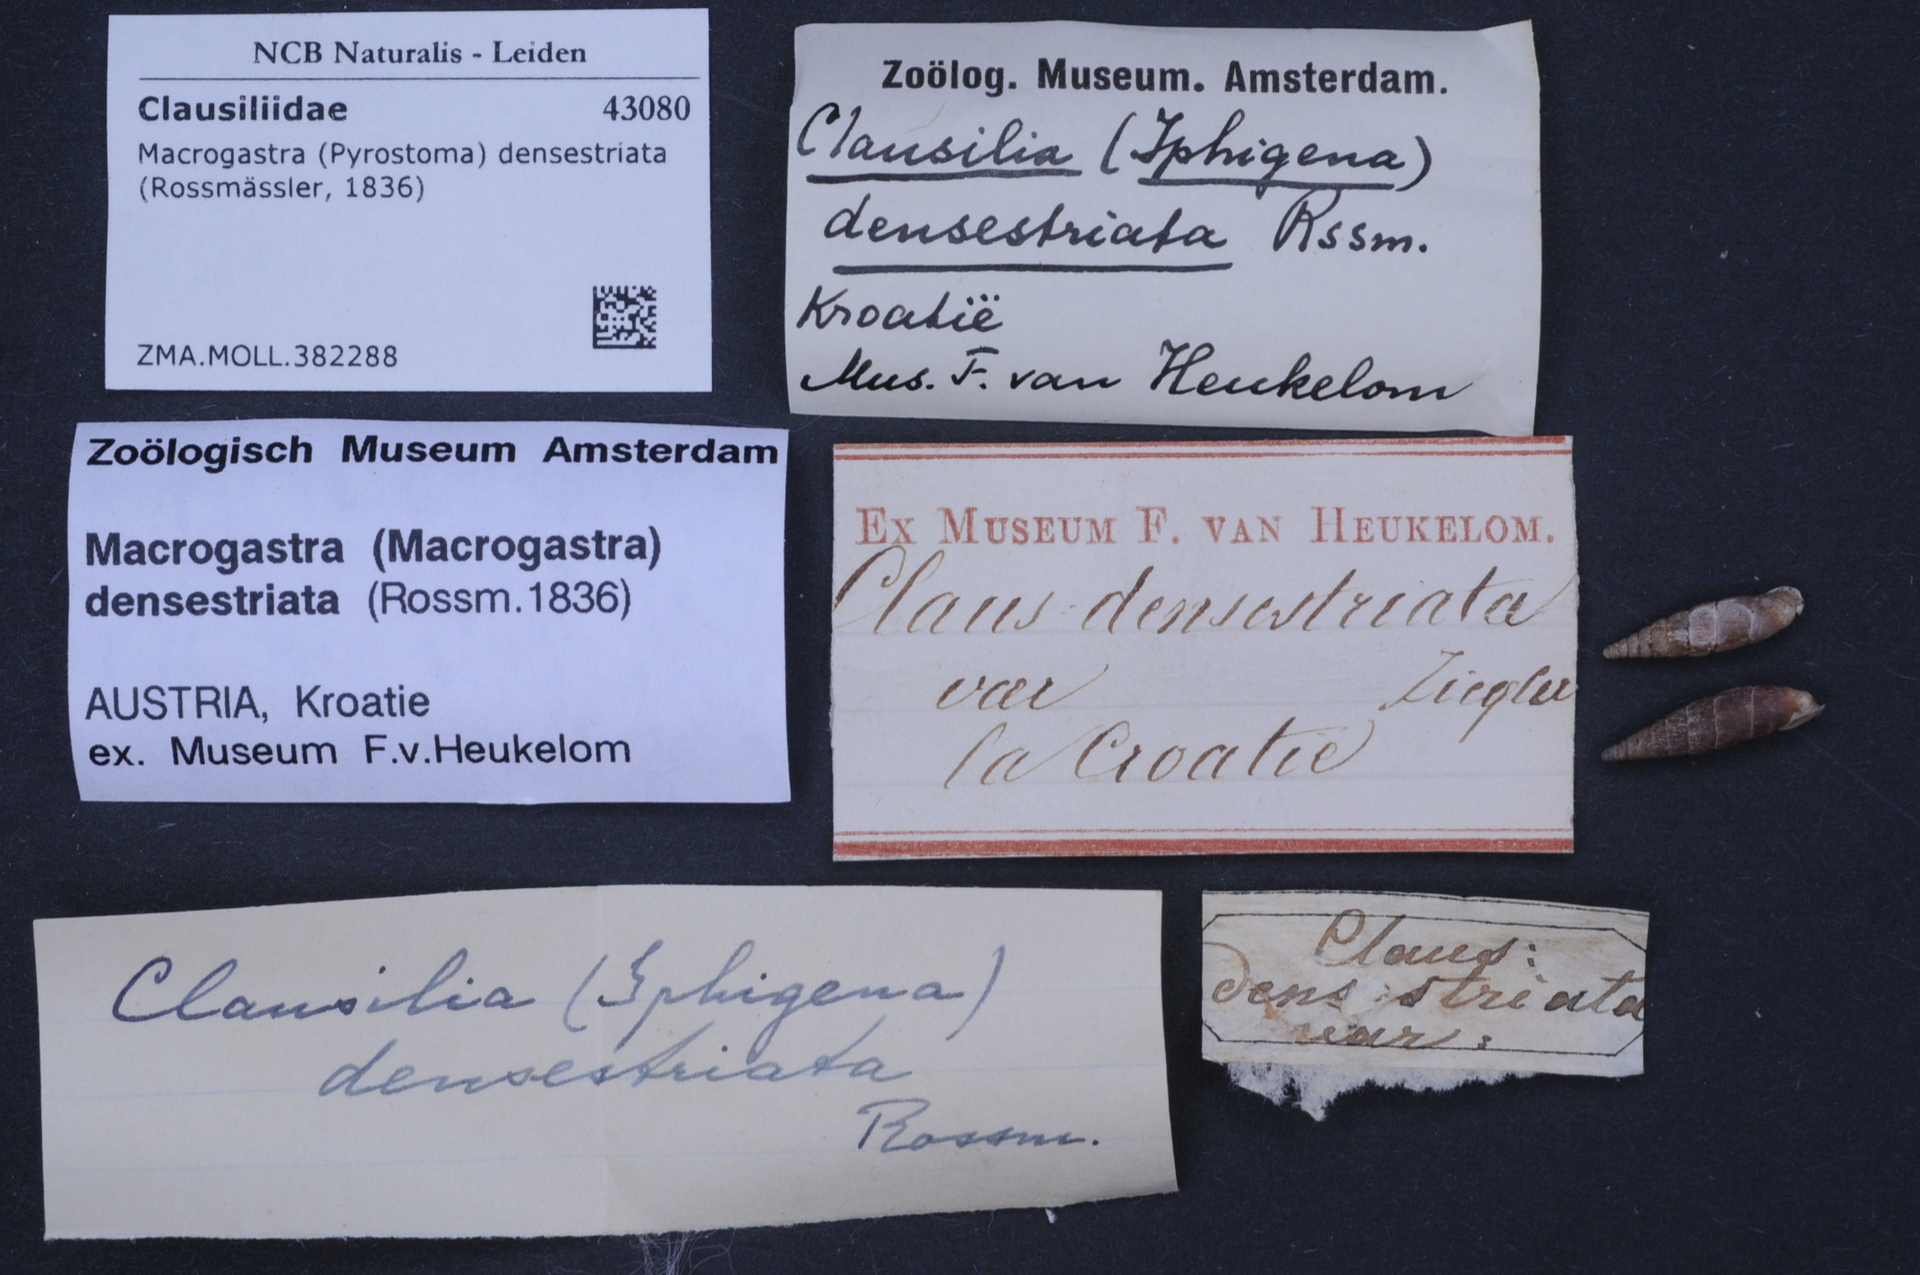 NCB Naturalis - Leiden
Clausiliidae 43080
Macrogastra (Pyrostoma) densestriata
(Rossmässler, 1836)
ZMA.MOLL.382288
Zoölog. Museum. Amsterdam.
Clausilia (Iphigena)
densestriata Rssm.
Kroatië
Mus. F. van Heukelom
Zoölogisch Museum Amsterdam
Macrogastra (Macrogastra)
densestriata (Rossm.1836)
AUSTRIA, Kroatie
ex. Museum F.v.Heukelom
EX MUSEUM F. VAN HEUKELOM.
Claus densestriata
var Ziegler
la Croatie
Clausilia (Iphigena)
densestriata
Rossm.
Claus:
dens:striata
var: